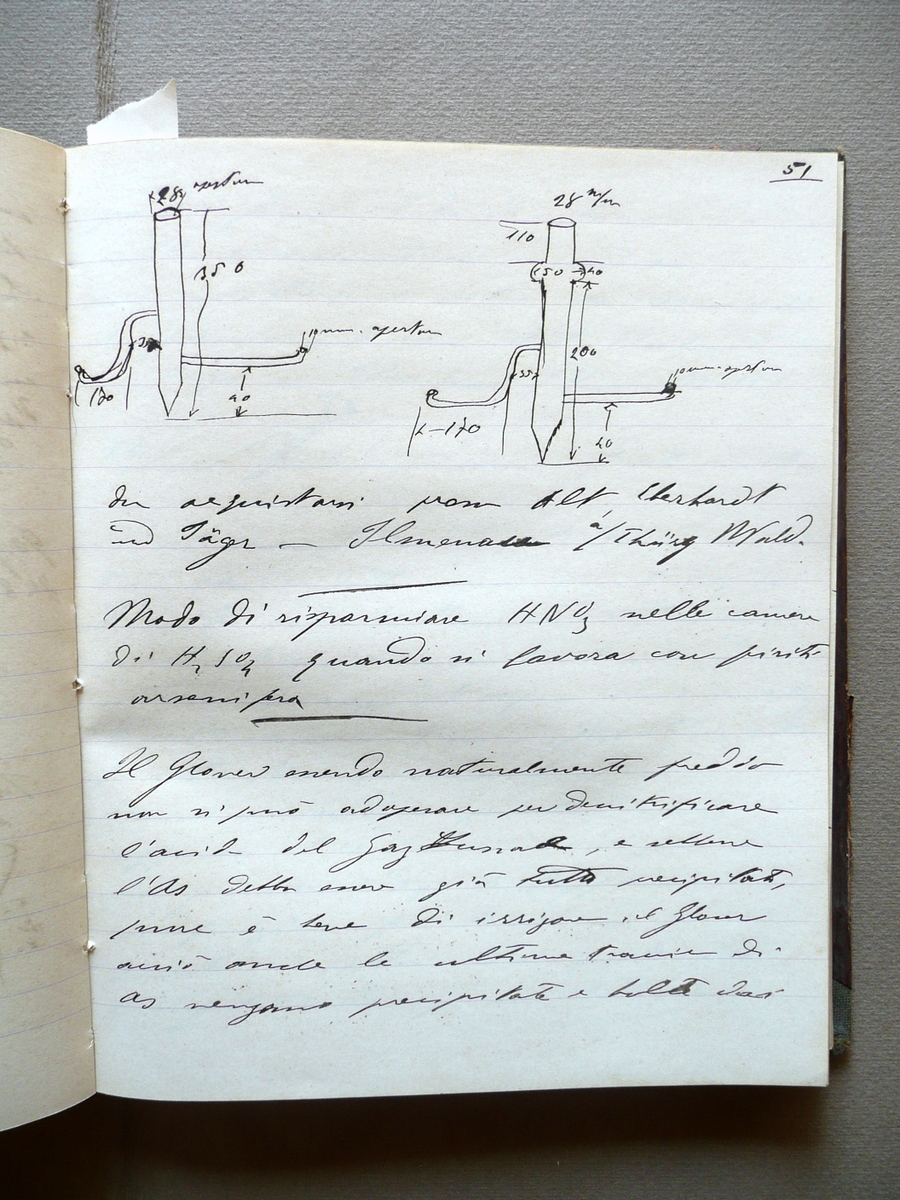 51
28 apertura
350
35
10 mm. apertura
170
40
28 m/m
110
50
40
200
35
10 mm. apertura
170
40
da acquistarsi presso Alt Eberhardt
und Jäger — Ilmenau a/Thüring Wald.
Modo di risparmiare HNO3 nelle camere
di H2SO4 quando si lavora con pirite
arsenifera
Il Glover essendo naturalmente freddo
non si può adoperare per denitrificare
l'acido del Gay Lussac, e sebbene
l'As debba essere già tutto precipitato,
pure è bene di irrigare il Glover
acciò anche le ultime traccie di
As vengano precipitate e tolte dai